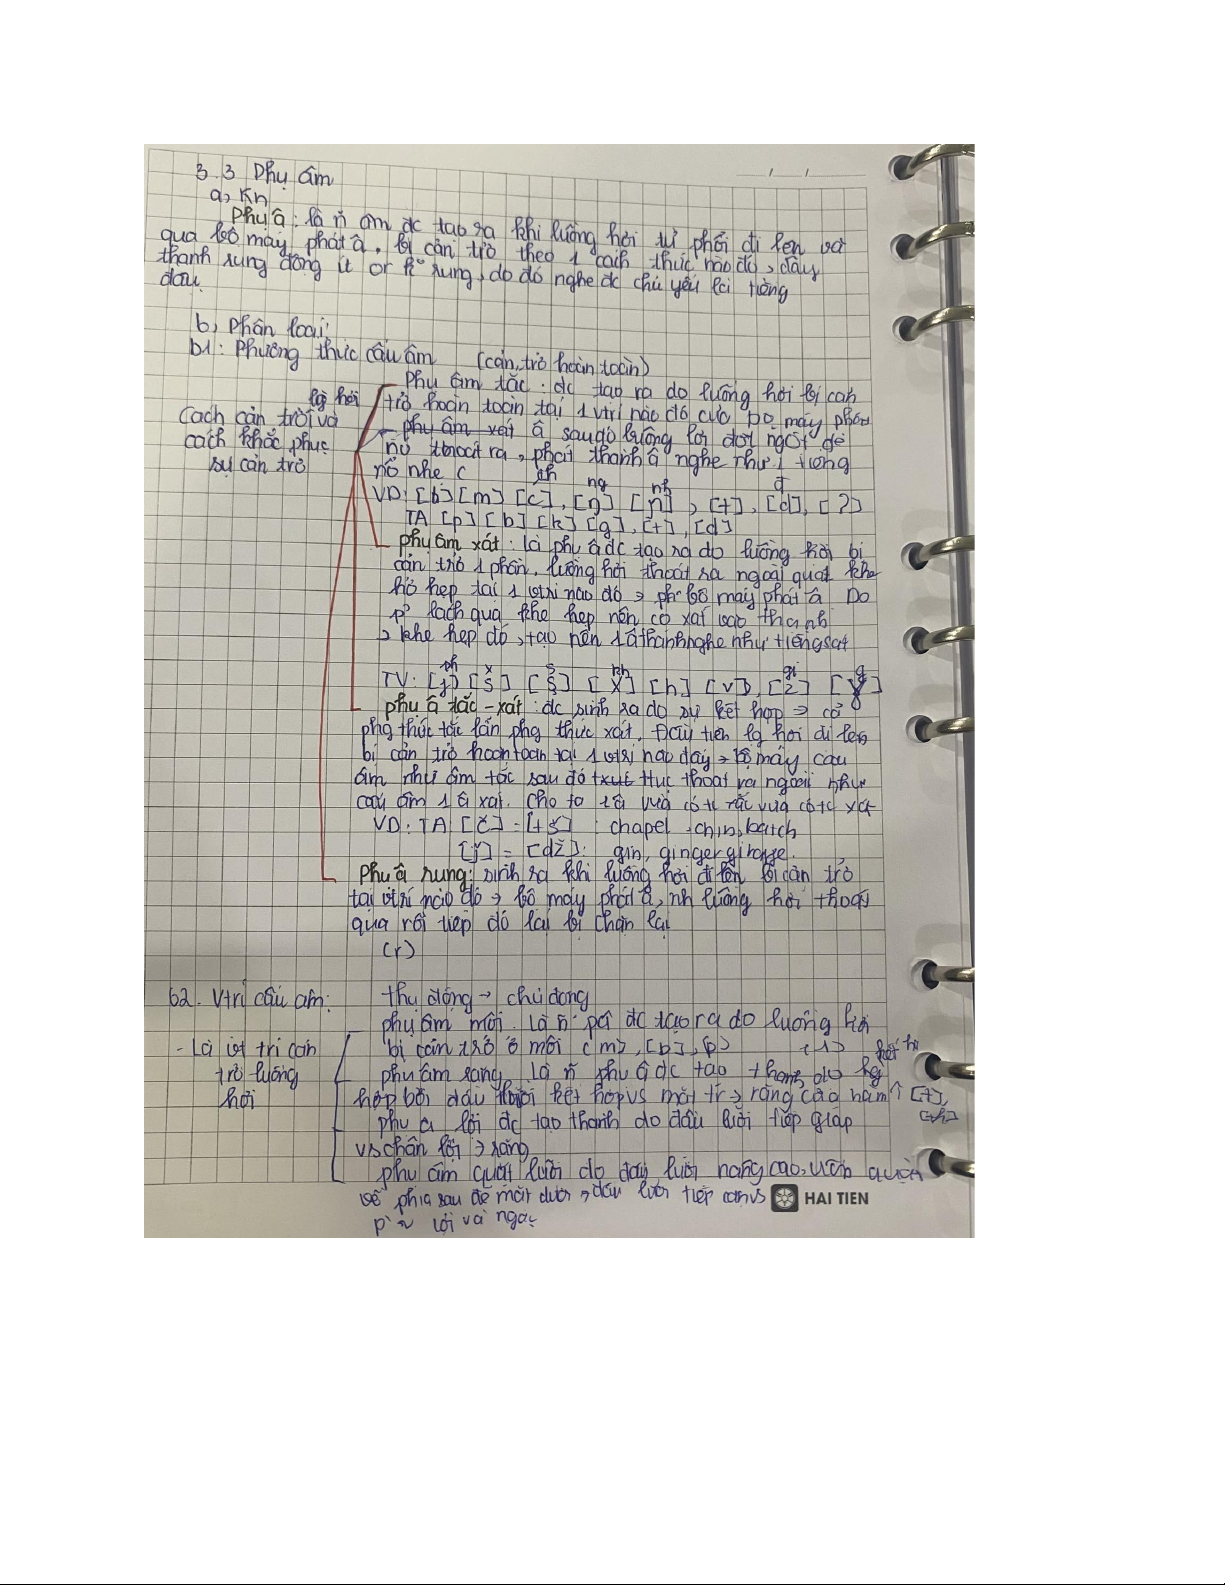 3.3 Phụ âm
a, Kn
Phụ â: là ñ âm đc tạo ra khi luồng hơi từ phổi đi lên và
qua bộ máy phát â, bị cản trở theo 1 cách thức nào đó, dây
thanh rung động ít or k° rung, do đó nghe đc chủ yếu là tiếng
động
b, Phân loại:
b1: Phương thức cấu âm (cản trở hoàn toàn)
Phụ âm tắc: đc tạo ra do luồng hơi bị cản
trở hoàn toàn tại 1 vtrí nào đó của bộ máy phát
â sau đó luồng hơi đột ngột để
nổ thoát ra, phát thành â nghe như 1 tiếng
nổ nhẹ
lg hơi
Cách cản trở và
cách khắc phục
sự cản trở
ch ng nh đ
VD: [b] [m] [c], [ŋ] [ɲ], [t], [d], [?]
TA [p] [b] [k] [g], [t], [d]
Phụ âm xát: là phụ â đc tạo ra do luồng hơi bị
cản trở 1 phần, luồng hơi thoát ra ngoài qua 1 khe
hở hẹp tại 1 vtrí nào đó → bộ máy phát â. Do
p² lách qua khe hẹp nên cọ xát vào thành
→ khe hẹp đó, tạo nên 1 â thanh nghe như tiếng sát
ph x s kh gi g
TV: [f] [s] [ʂ] [χ] [h] [v], [z] [ɣ]
phụ â tắc - xát: đc sinh ra do sự kết hợp → cả
phg thức tắc lẫn phg thức xát. Đầu tiên lg hơi đi lên
bị cản trở hoàn toàn tại 1 vtrí nào đấy → bộ máy cấu
âm như âm tắc sau đó txuc tục thoát ra ngoài như
cấu âm 1 â xát. Cho ta 1 â vừa có tc tắc vừa có tc xát
VD: TA [č] = [tš] : chapel, chin, batch
[ǰ] = [dž]: gin, ginger, giraffe.
Phụ â rung: sinh ra khi luồng hơi đi lên bị cản trở
tại vtrí nào đó → bộ máy phát â, nh luồng hơi thoát
qua rồi tiếp đó lại bị chặn lại
(r)
b2. Vtrí cấu âm: thụ động → chủ động
phụ âm môi. Là ñ pâ đc tạo ra do luồng hơi
- Là vtrí cản bị cản trở ở môi (m), [b], (p)
trở luồng phụ âm răng là ñ phụ â đc tạo thành do
hơi hợp bởi đầu lưỡi kết hợp vs mặt tr → răng cửa hàm ↑ [t],
phụ â lợi đc tạo thành do đầu lưỡi tiếp giáp
vs chân lợi → răng
phụ âm quặt lưỡi do đầu lưỡi nâng cao, uốn quặt
về phía sau để mặt dưới → đầu lưỡi tiếp cận vs
lợi và ngạc
HAI TIEN